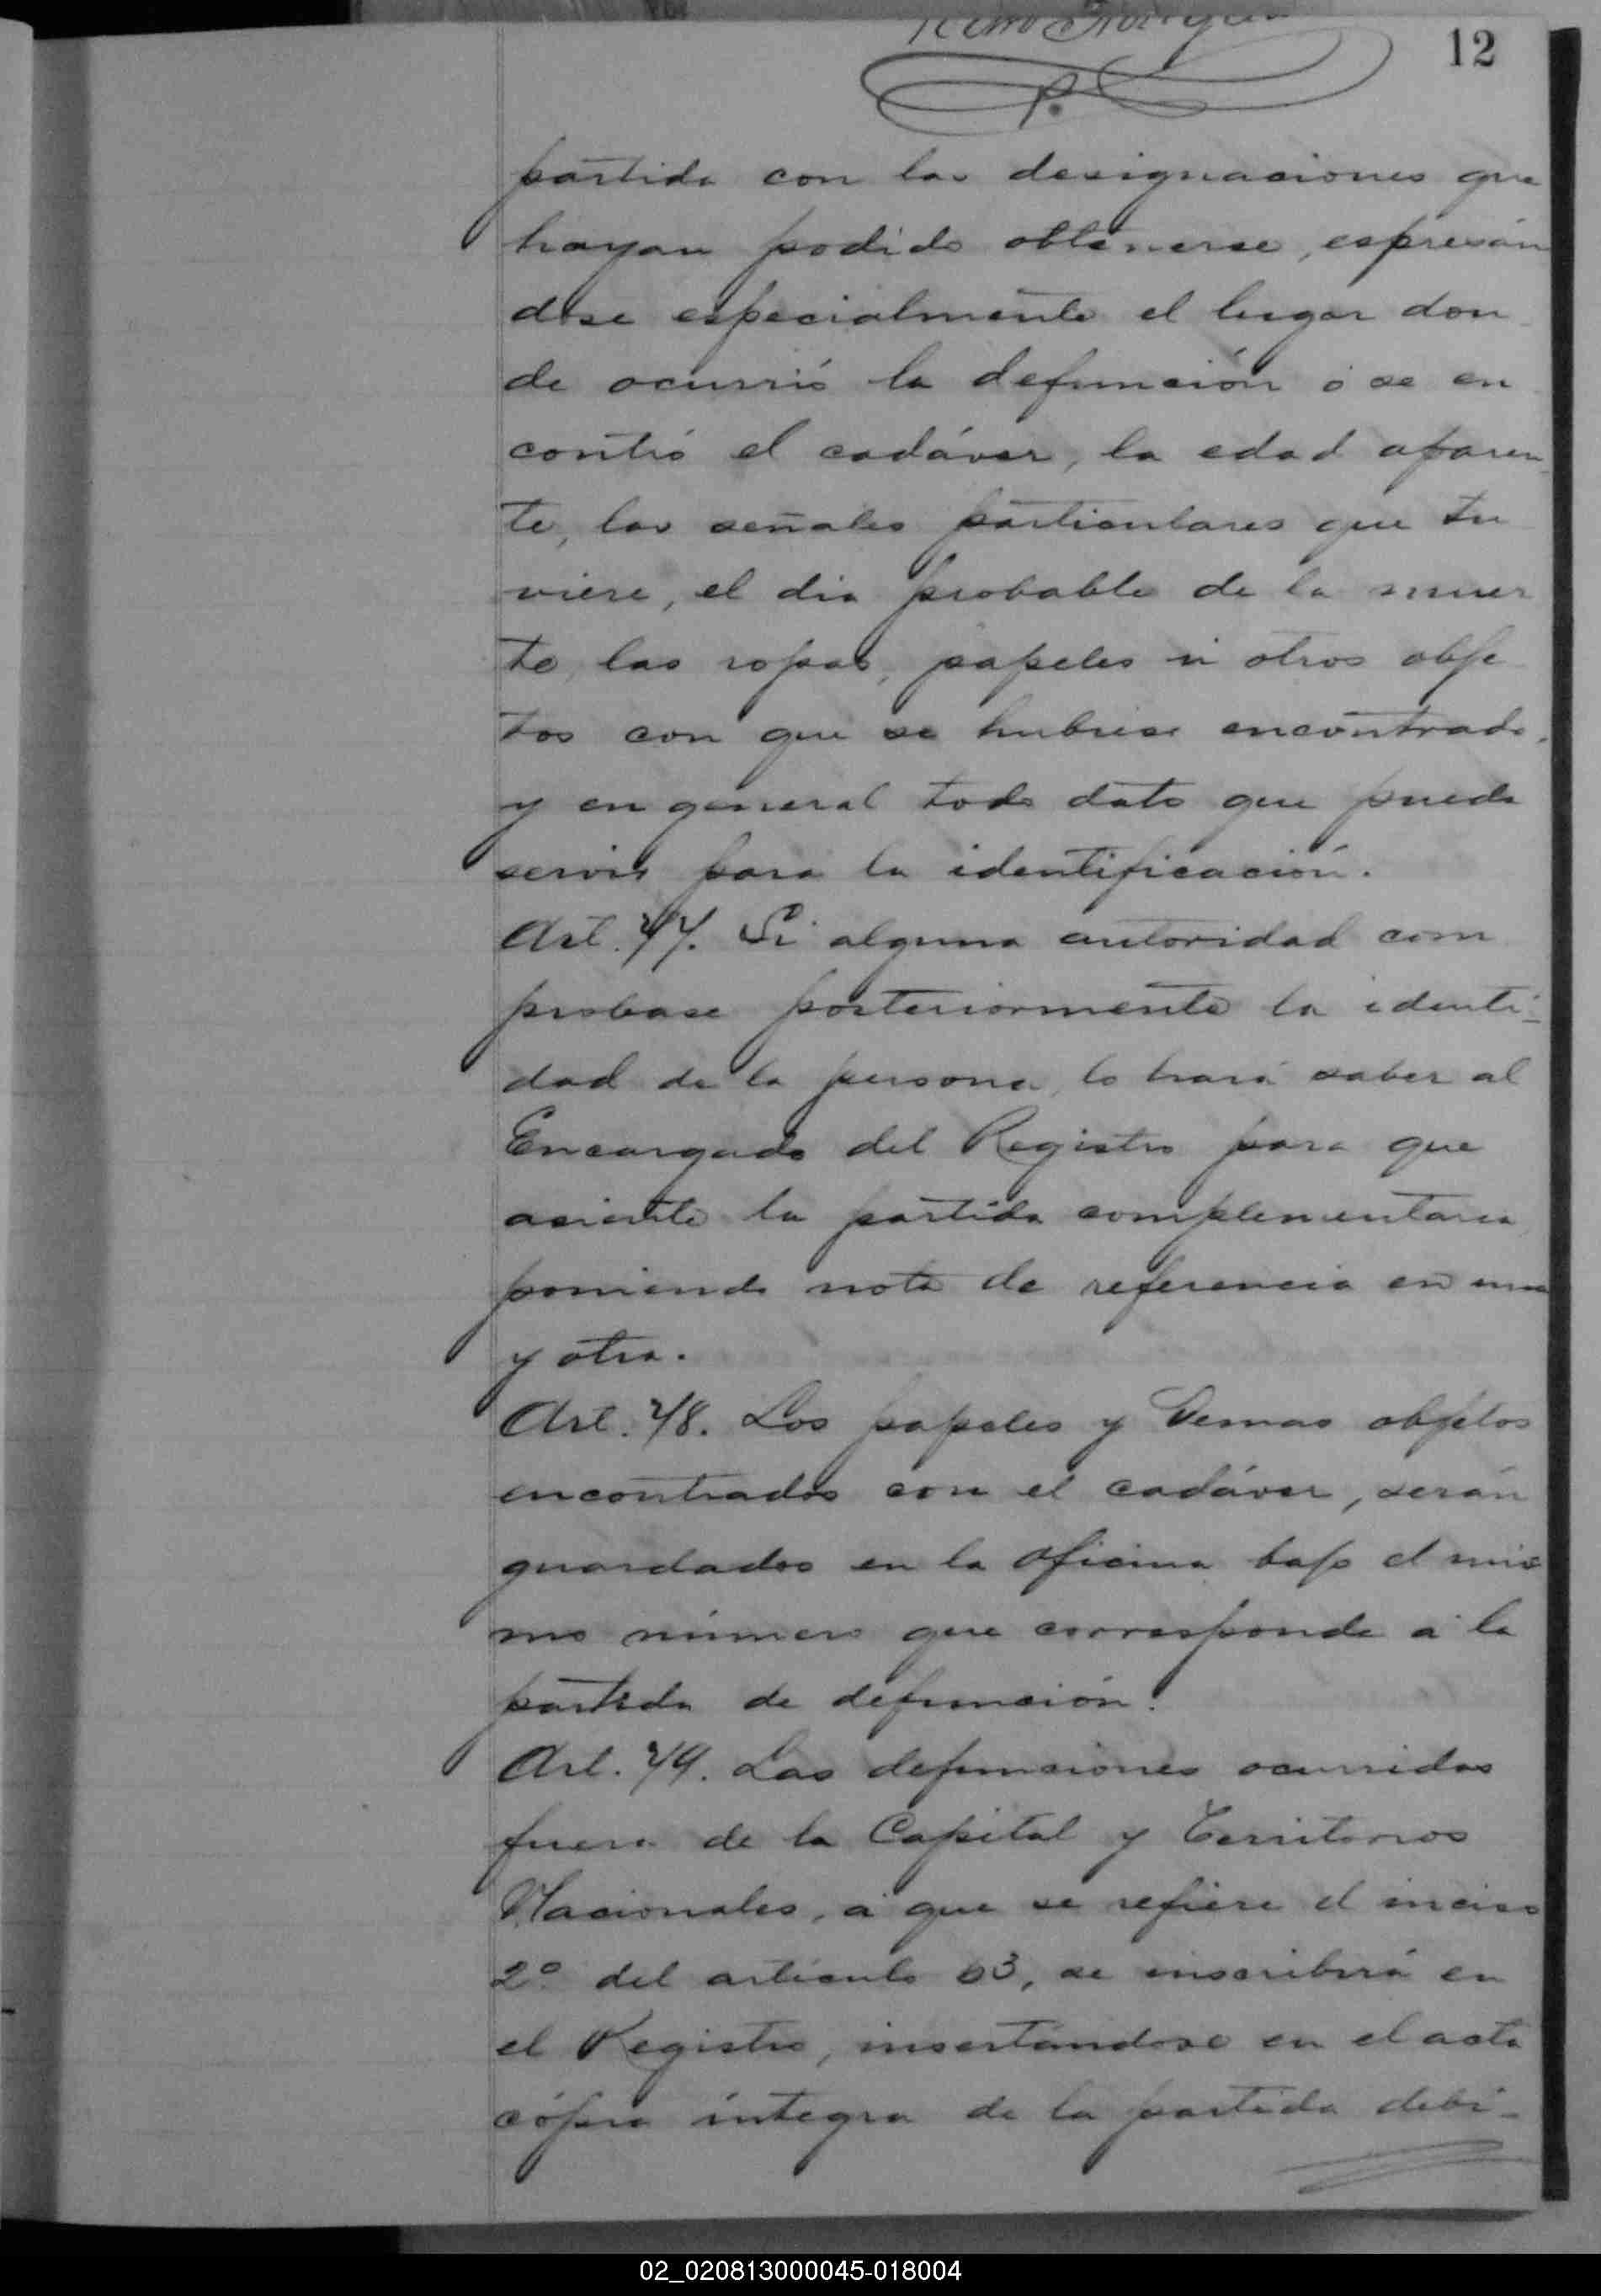 12
partida con las designaciones que
hayan podido obtenerse, espresán
dose especialmente el lugar don
de ocurrió la defunción ó se en
contró el cadáver, la edad aparen
te, las señales particulares que tu
viere, el dia probable de la muer
te, las ropas, papeles ú otros obje
tos con que se hubiese encontrado,
y en general todo dato que pueda
servir para la identificación.
Art. 77. Si alguna autoridad com
probase posteriormente la identi-
dad de la persona, lo hará saber al
Encargado del Registro para que
asiente la partida complementaria
poniendo nota de referencia en una
y otra.
Art. 78. Los papeles y demas objetos
encontrados con el cadáver, serán
guardados en la oficina bajo el mis
mo número que corresponde á la
partida de defunción.
Art. 79. Las defunciones ocurridas
fuera de la Capital y Territorios
Nacionales, á que se refiere el inciso
2º del artículo 63, se inscribirá en
el Registro, insertándose en el acta
cópia íntegra de la partida debi-
02_020813000045-018004